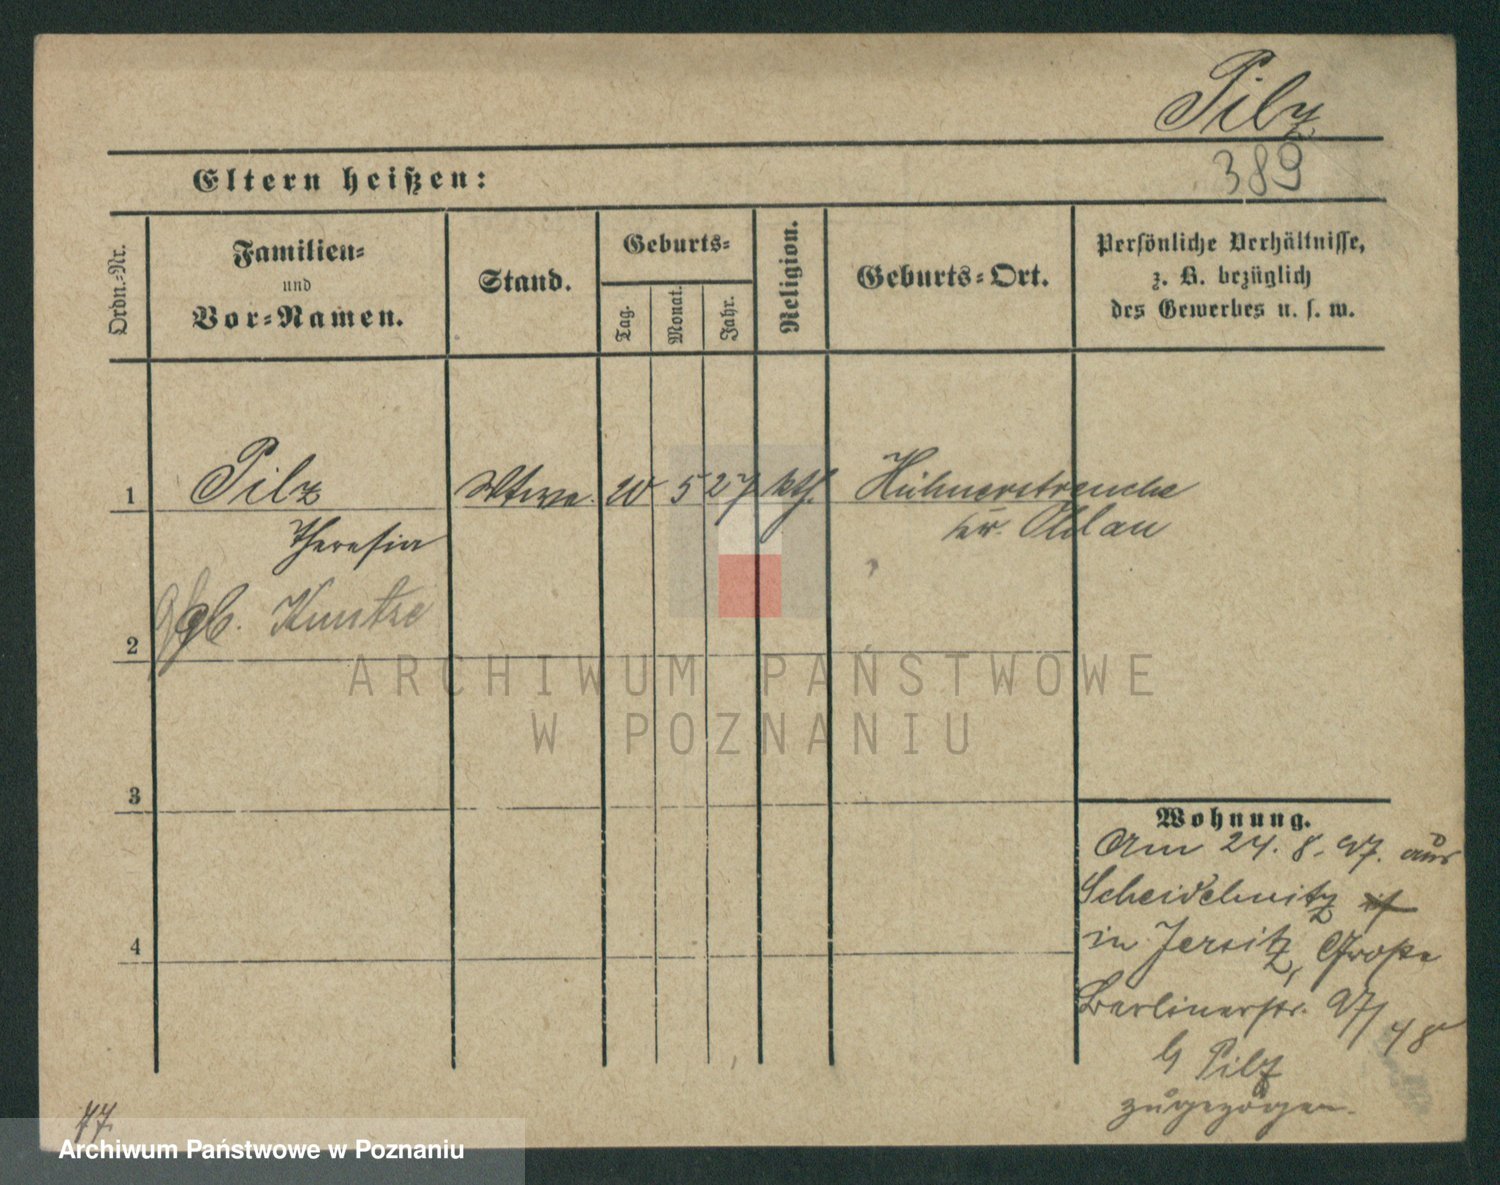 Pilz
389
Eltern heißen:
Ordn.-Nr.
Familien-
und
Vor-Namen.
Stand.
Geburts-
Tag.
Monat.
Jahr.
Religion.
Geburts-Ort.
Persönliche Verhältnisse,
z. B. bezüglich
des Gewerbes u. s. w.
1 Pilz Wtwe. 20 5 27 kth. Hühnerstreuche
Theresia kr. Ohlau
gb. Kuntze
2
ARCHIWUM PAŃSTWOWE
W POZNANIU
3
Wohnung.
Am 24. 8. 97. aus
Scheidelwitz
in Jersitz, Große
Berlinerstr. 97/48
b/ Pilz
zugezogen.
4
77
Archiwum Państwowe w Poznaniu